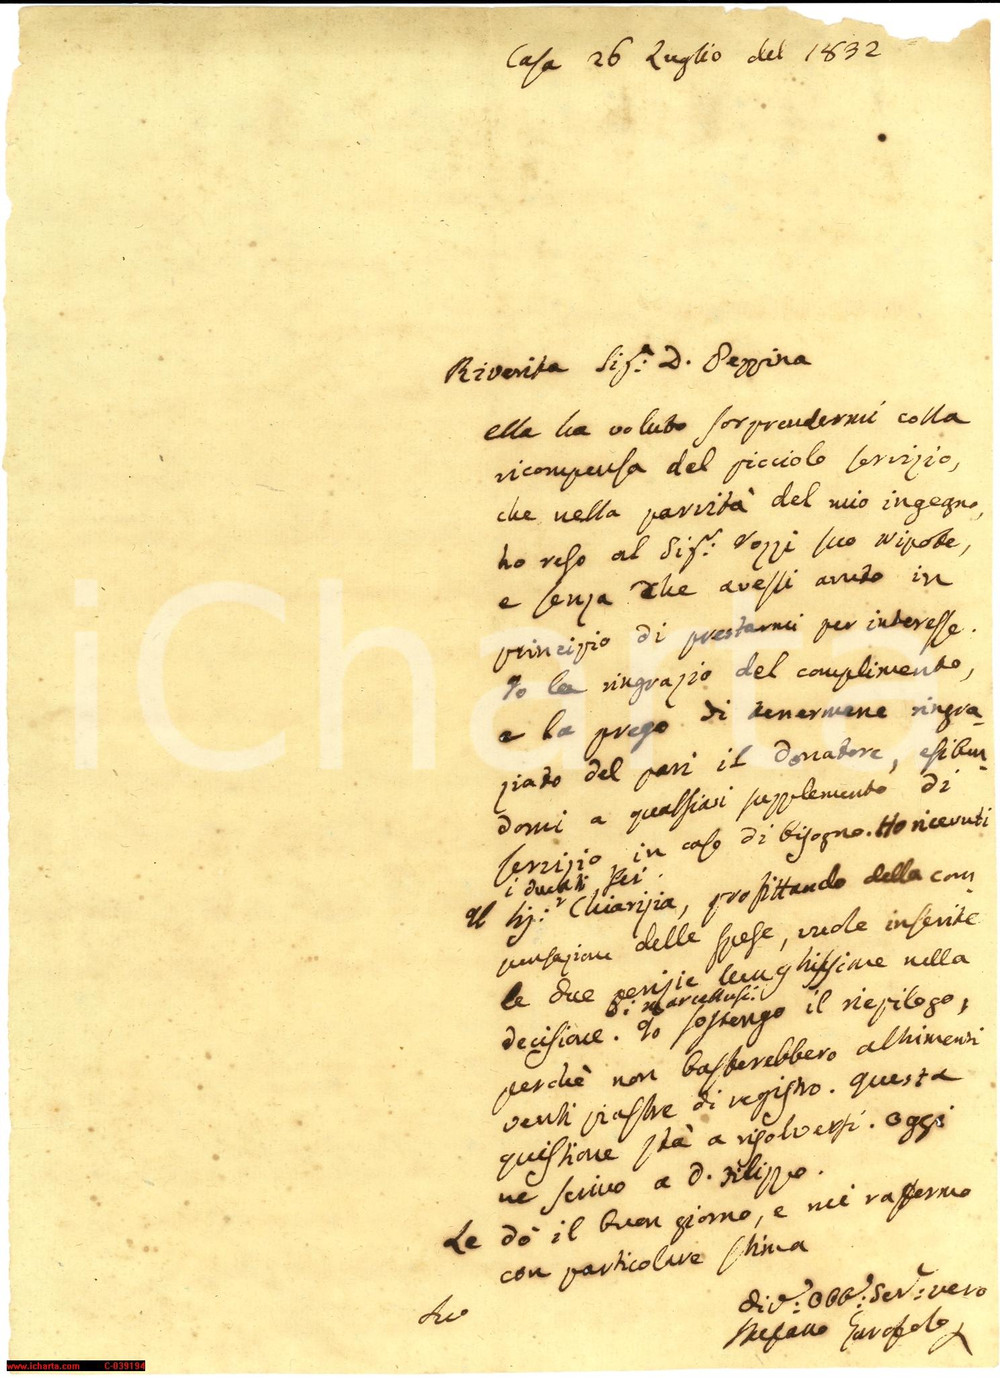 Casa 26 Luglio del 1832
Riverita Sig.ª D. Peppina
ella ha voluto sorprendermi colla
ricompensa del picciolo servizio,
che nella parvità del mio ingegno,
ho reso al Sig.r Pozzi suo Nipote,
e senza che avessi avuto in
principio di prestarmi per interesse.
Io la ringrazio del complimento,
e la prego di tenermene ringra-
ziato del pari il donatore, esiben-
domi a qualsiasi supplemento di
servizio in caso di bisogno. Ho ricevuti
i ducati sei.
Il Sig.r Chiarizia, profittando della com-
pensazione delle spese, vuole inserite
le due perizie lunghissime nella
di Marcellusi.
decisione. Io sostengo il riepilogo,
perchè non basterebbero altrimenti
venti piastre di registro. Questa
quistione stà a risolversi. Oggi
ne scrivo a D. Filippo.
Le dò il buon giorno, e mi raffermo
con particolare stima
Suo
Div.º: Obb.º: Ser.e: vero
Stefano Garofolo
iCharta
www.icharta.com C-039194